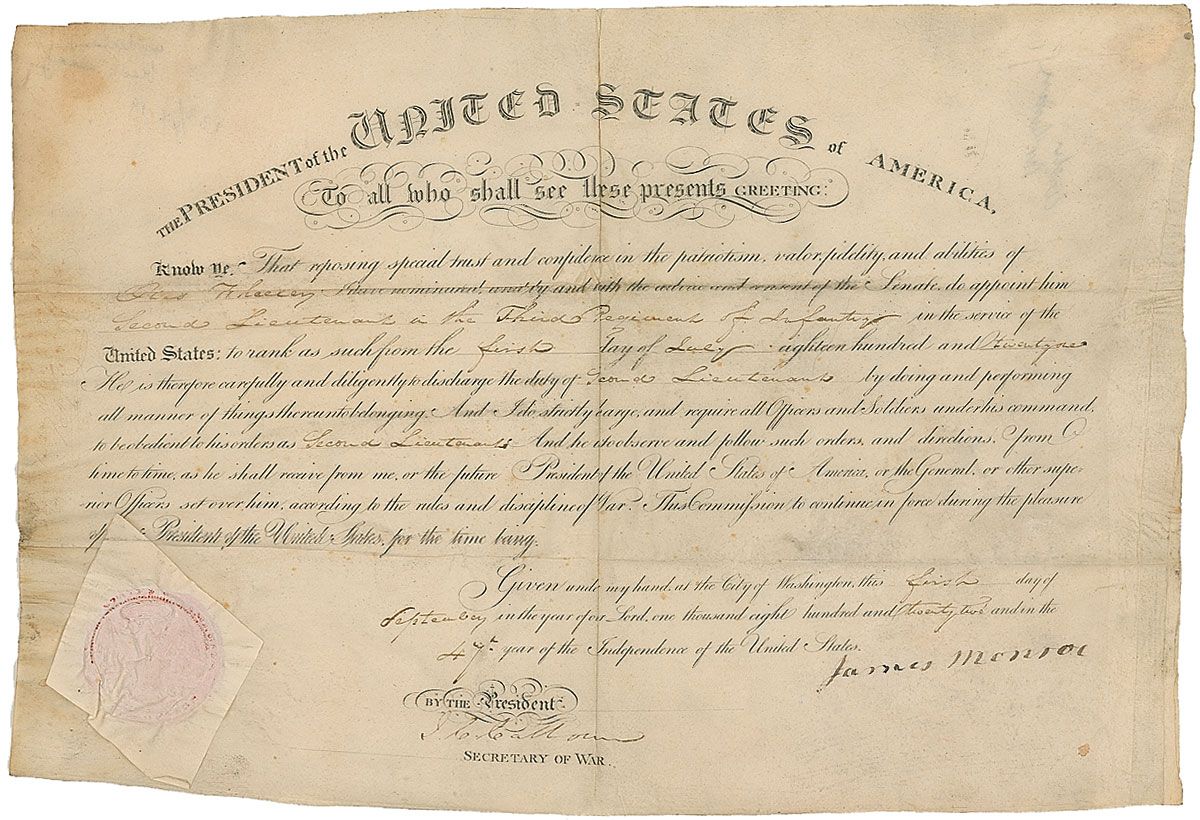 THE PRESIDENT of the UNITED STATES of AMERICA,
To all who shall see these presents GREETING:
Know Ye. That reposing special trust and confidence in the patriotism, valor, fidelity, and abilities of
Otis Wheeler I have nominated, and by and with the advice and consent of the Senate, do appoint him
Second Lieutenant in the Third Regiment of Infantry in the service of the
United States: to rank as such from the first day of July eighteen hundred and twenty one
He is therefore carefully and diligently to discharge the duty of Second Lieutenant by doing and performing
all manner of things thereunto belonging. And I do strictly charge, and require all Officers and Soldiers under his command,
to be obedient to his orders as Second Lieutenant. And he is to observe and follow such orders, and directions, from
time to time, as he shall receive from me, or the future President of the United States of America, or the General, or other supe-
rior Officers set over him, according to the rules and discipline of War. This Commission to continue in force during the pleasure
of President of the United States, for the time being.
Given under my hand, at the City of Washington, this first day of
September in the year of our Lord, one thousand eight hundred and twenty two and in the
47th year of the Independence of the United States.
James Monroe
BY THE President
J C Calhoun
SECRETARY OF WAR.